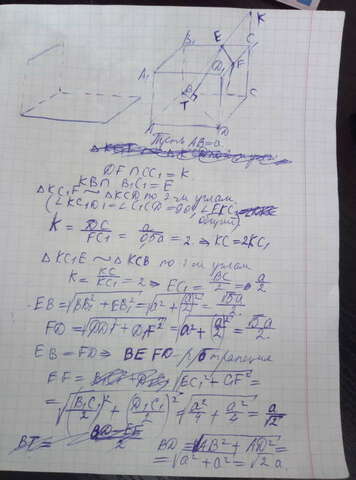 K
B₁ E C₁
A₁ D₁ F
B C
T
A D
Пусть AB=a
DF∩CC₁=K
KB∩B₁C₁=E
ΔKC₁F ~ ΔKCD по 2-м углам
(∠KC₁D₁=∠C₁CD=90°,
общий)
K = DC/FC₁ = a/0,5a = 2 ⇒ KC=2KC₁
ΔKC₁E ~ ΔKCB по 2-м углам
K = KC/KC₁ = 2 ⇒ EC₁ = BC/2 = a/2
EB = √(BB₁² + EB₁²) = √(a² + a²/2) = √5a/2
FD = √(DD₁² + D₁F²) = √(a² + a²/2) = √5a/2
EB = FD ⇒ BEFD - р/б трапеция
EF = √(EC₁² + CF²) =
= √((B₁C₁/2)² + (D₁C₁/2)²) = √(a²/4 + a²/4) = a/√2
BT = BD-EF/2 BD = √(AB² + AD²) =
= √(a² + a²) = √2 a.